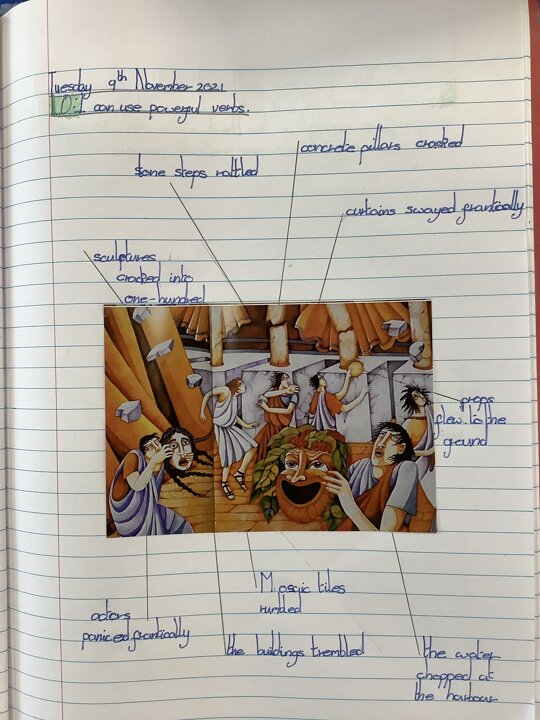 Tuesday 9th November 2021
LO: I can use powerful verbs.
concrete pillars cracked
Stone steps rattled
curtains swayed frantically
sculptures
cracked into
one-hundred
props
flew to the
ground
Mosaic tiles
actors
paniced frantically
the buildings trembled
the water
chopped at
the harbour